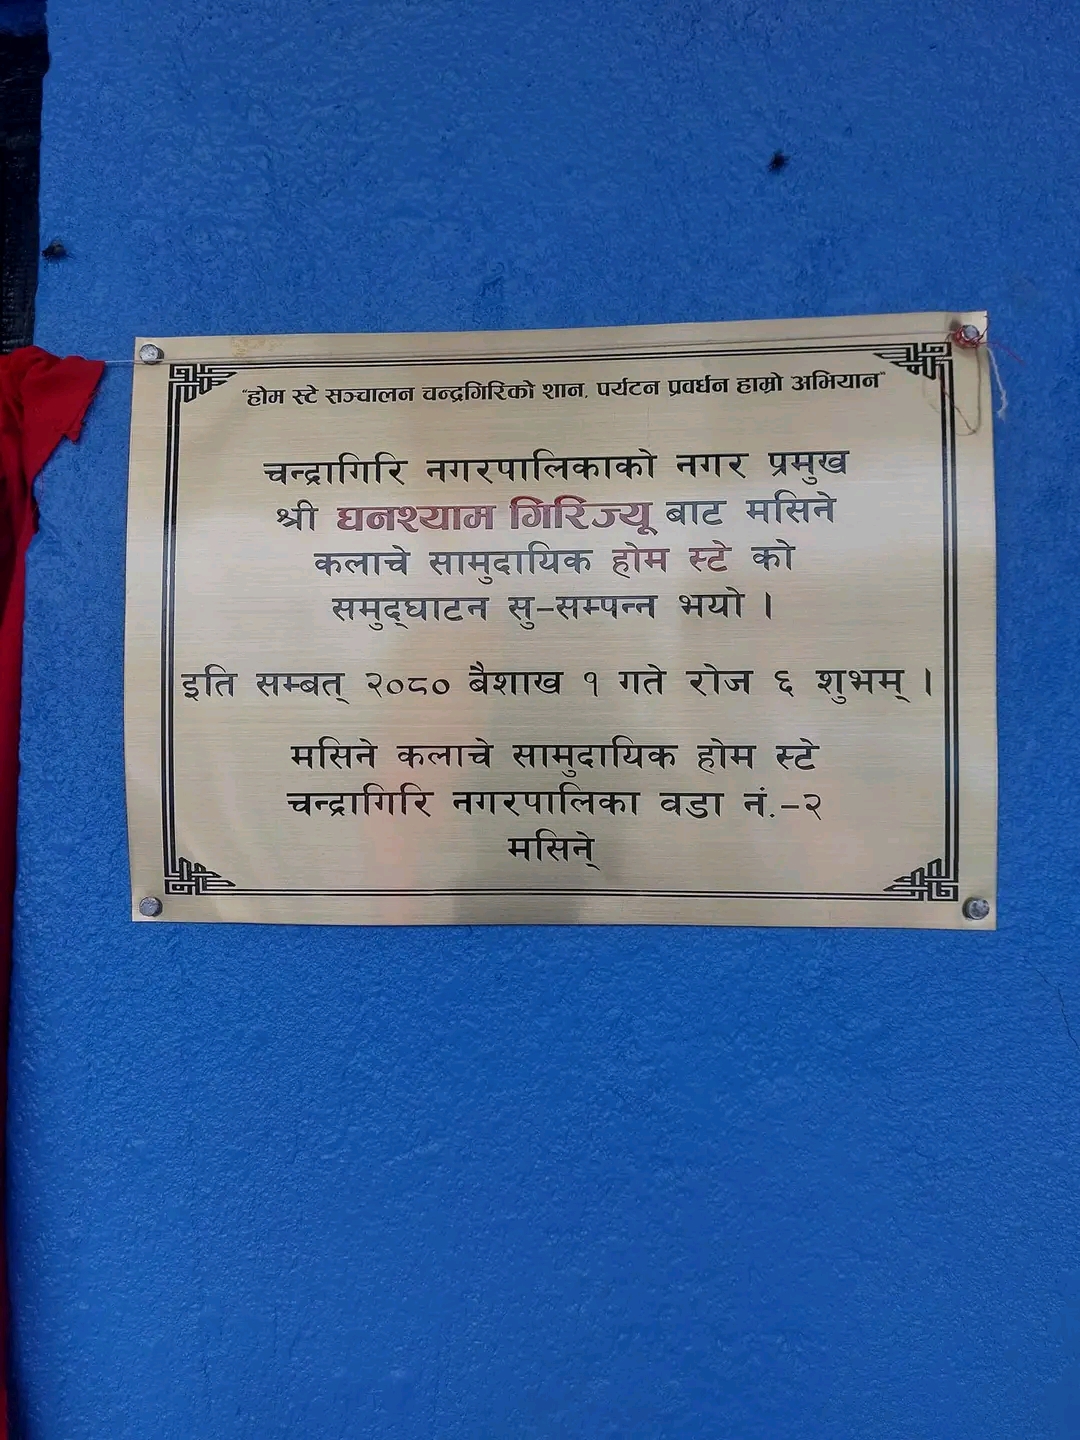 "होम स्टे सञ्चालन चन्द्रगिरिको शान, पर्यटन प्रवर्धन हाम्रो अभियान"
चन्द्रागिरि नगरपालिकाको नगर प्रमुख
श्री घनश्याम गिरिज्यू बाट मसिने
कलाचे सामुदायिक होम स्टे को
समुद्घाटन सु-सम्पन्न भयो ।
इति सम्बत् २०८० बैशाख १ गते रोज ६ शुभम् ।
मसिने कलाचे सामुदायिक होम स्टे
चन्द्रागिरि नगरपालिका वडा नं.-२
मसिने्